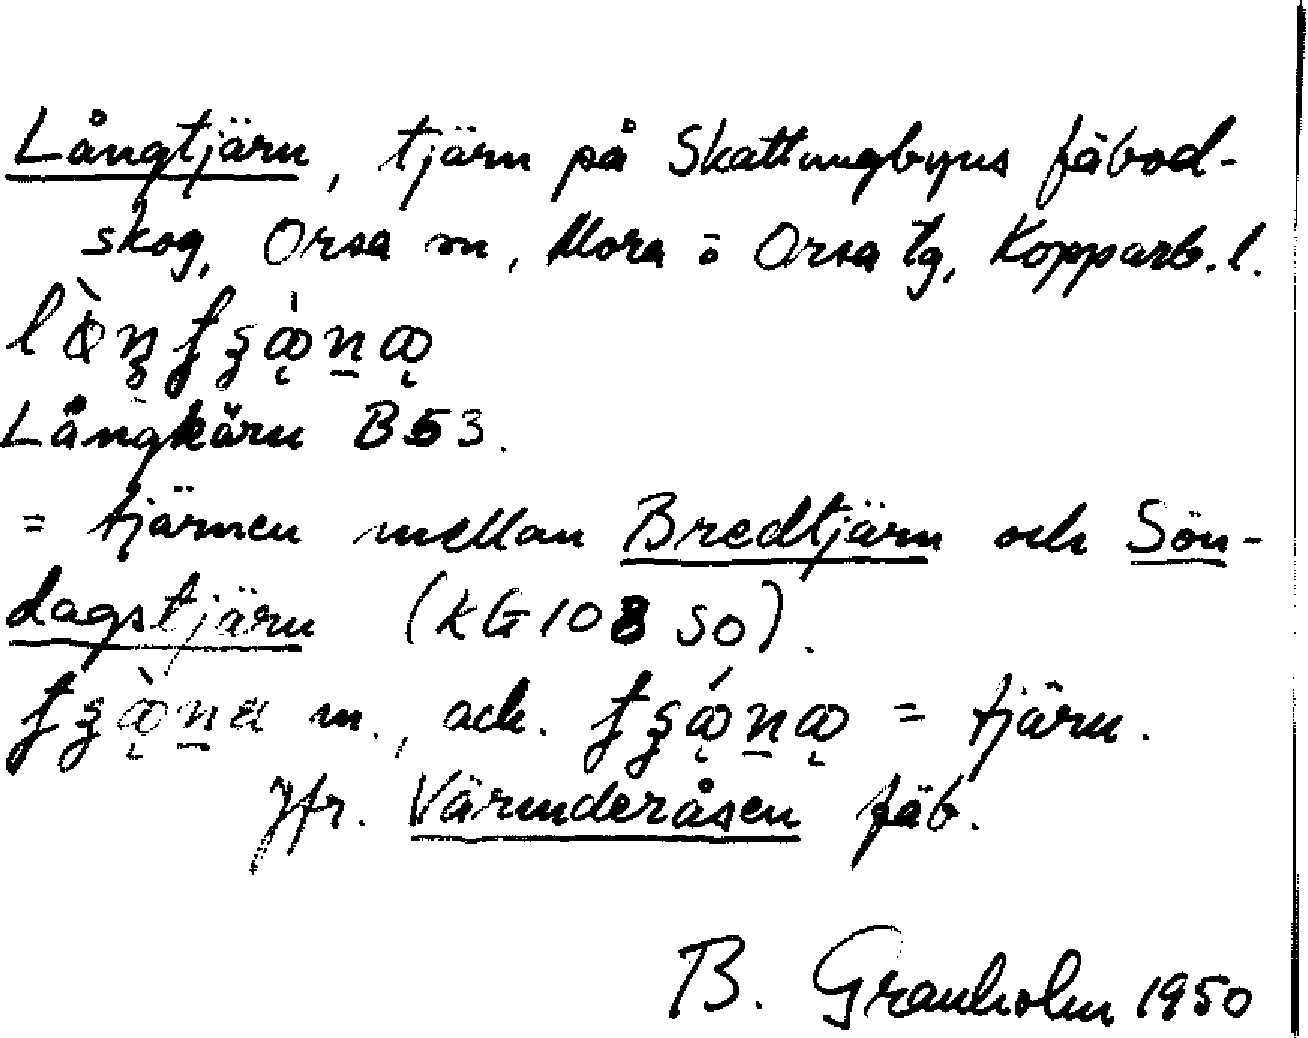 Långtjärn, tjärn på Skattungbyns fäbod-
skog, Orsa sn, Mora o Orsa tg, Kopparb. l.
Långkärn B53.
= tjärnen mellan Bredtjärn och Sön-
dagstjärn (KG 108 SO).
m., ack. = tjärn.
Jfr. Värmderåsen fäb.
B. Granholm 1950